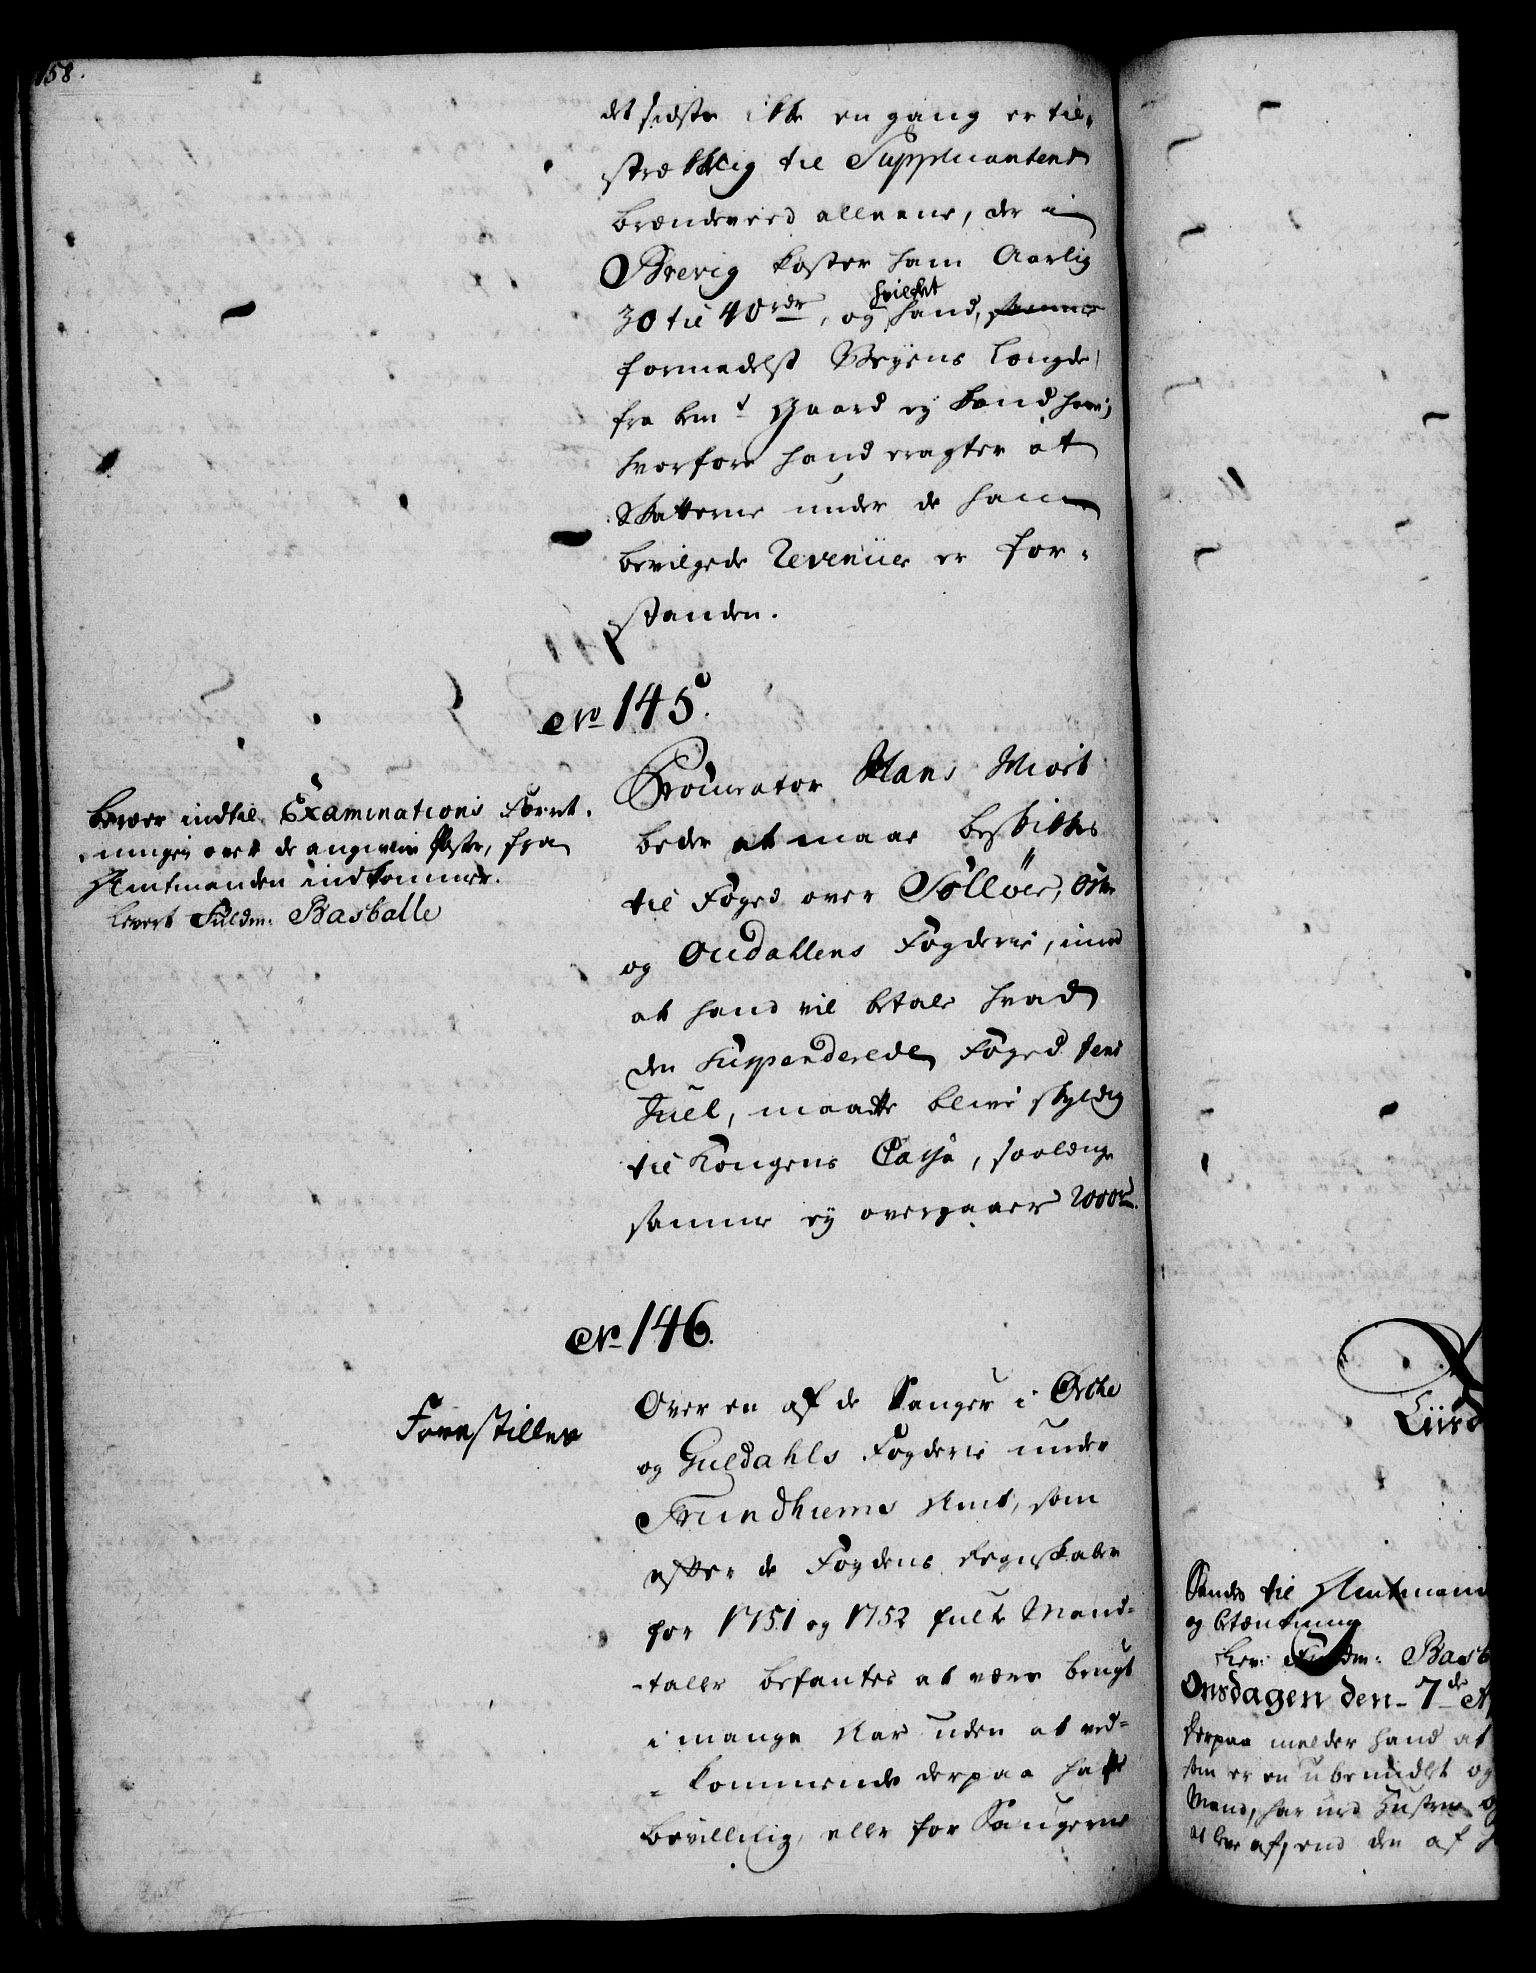 158.
det sidste ikke en gang er til¬
strekkelig til Supplicantens
brændeveed alleene, der i
Brevig koster ham Aarlig
30 til 40 rdr, og hvilket hand, samme
formedelst Veyens længde,
fra bem:t Gaard ey kand have;
hvorfore hand eragter at
Skatterne under de ham
bevilgede Revenüer er for¬
standen.
No 145.
Beroer indtil Examinations Forret¬
ningen over de angivne Poster, fra
Amtmanden indkommer.
Levert Fuldm: Basballe
Procurator Hans Mort
beder at maae beskikkes
til Foged over Solløer, Øster
og Oudahlens Fogderie, imod
at hand vil betale hvad
den Suspenderede Foged Jens
Juel, maatte blive skyldig
til Kongens Cassa, saalænge
samme ey overgaaer 2000 rd.
No 146.
Forestilles
Over en af de Sauger i Orche
og Guldahls Fogderie under
Trundhiems Amt, som
efter de Fogdens Regnskaber
for 1751 og 1752 fulte Mand¬
taller befantes at være brugt
i mange Aar uden at ved¬
kommende derpaa hafte
bevilling, eller for Saugerne
Sendes til Amtmand
og betænkning
Lev: Fuldm: Basb
Onsdagen den 7de A
Derpaa melder hand at
som er en ubemidlet og
Mand, har med Hustrue og
at leve af, end den af